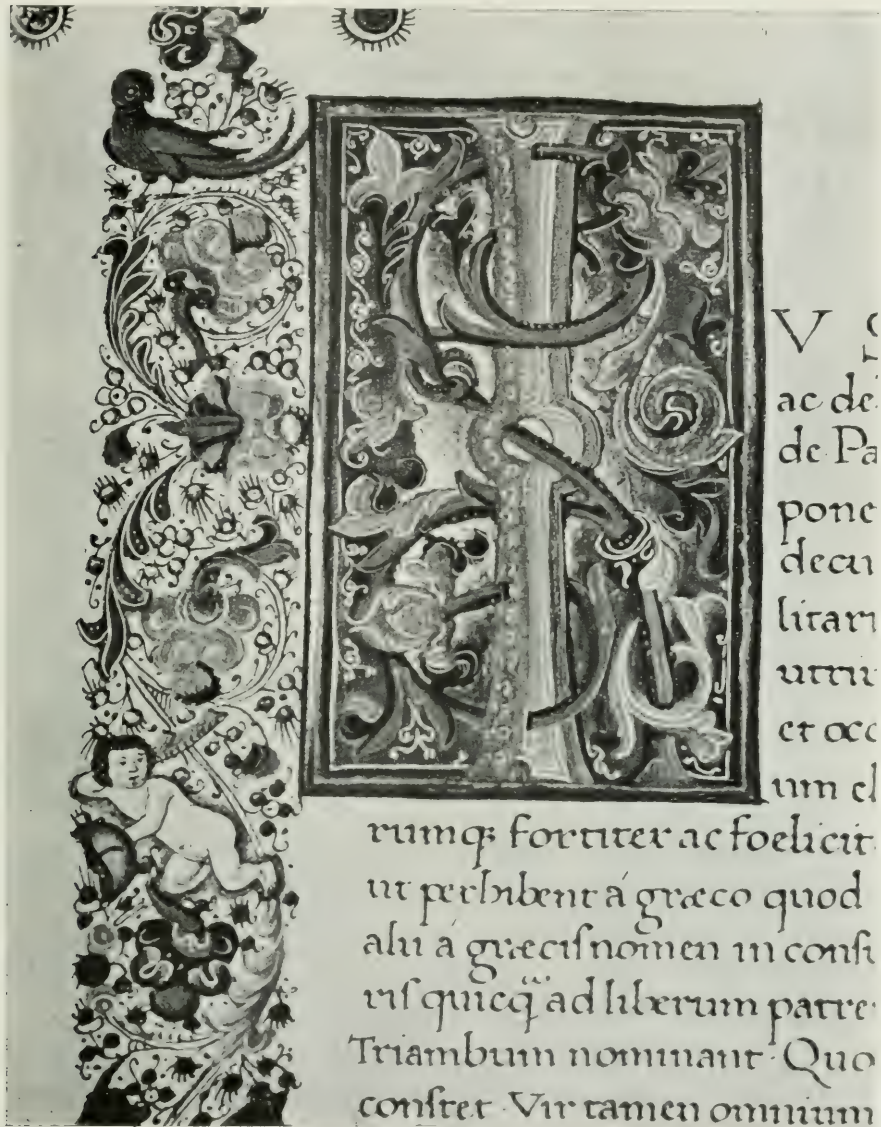 V
ac de
de Pa
pone
decu
litari
utriu
et occ
um el
rumq; fortiter ac foelicit
ut perhibent á græco quod
alii á græcis nomen in consu
ris quicq ad liberum patre
Triambum nominant · Quo
constet · Vir tamen omnium